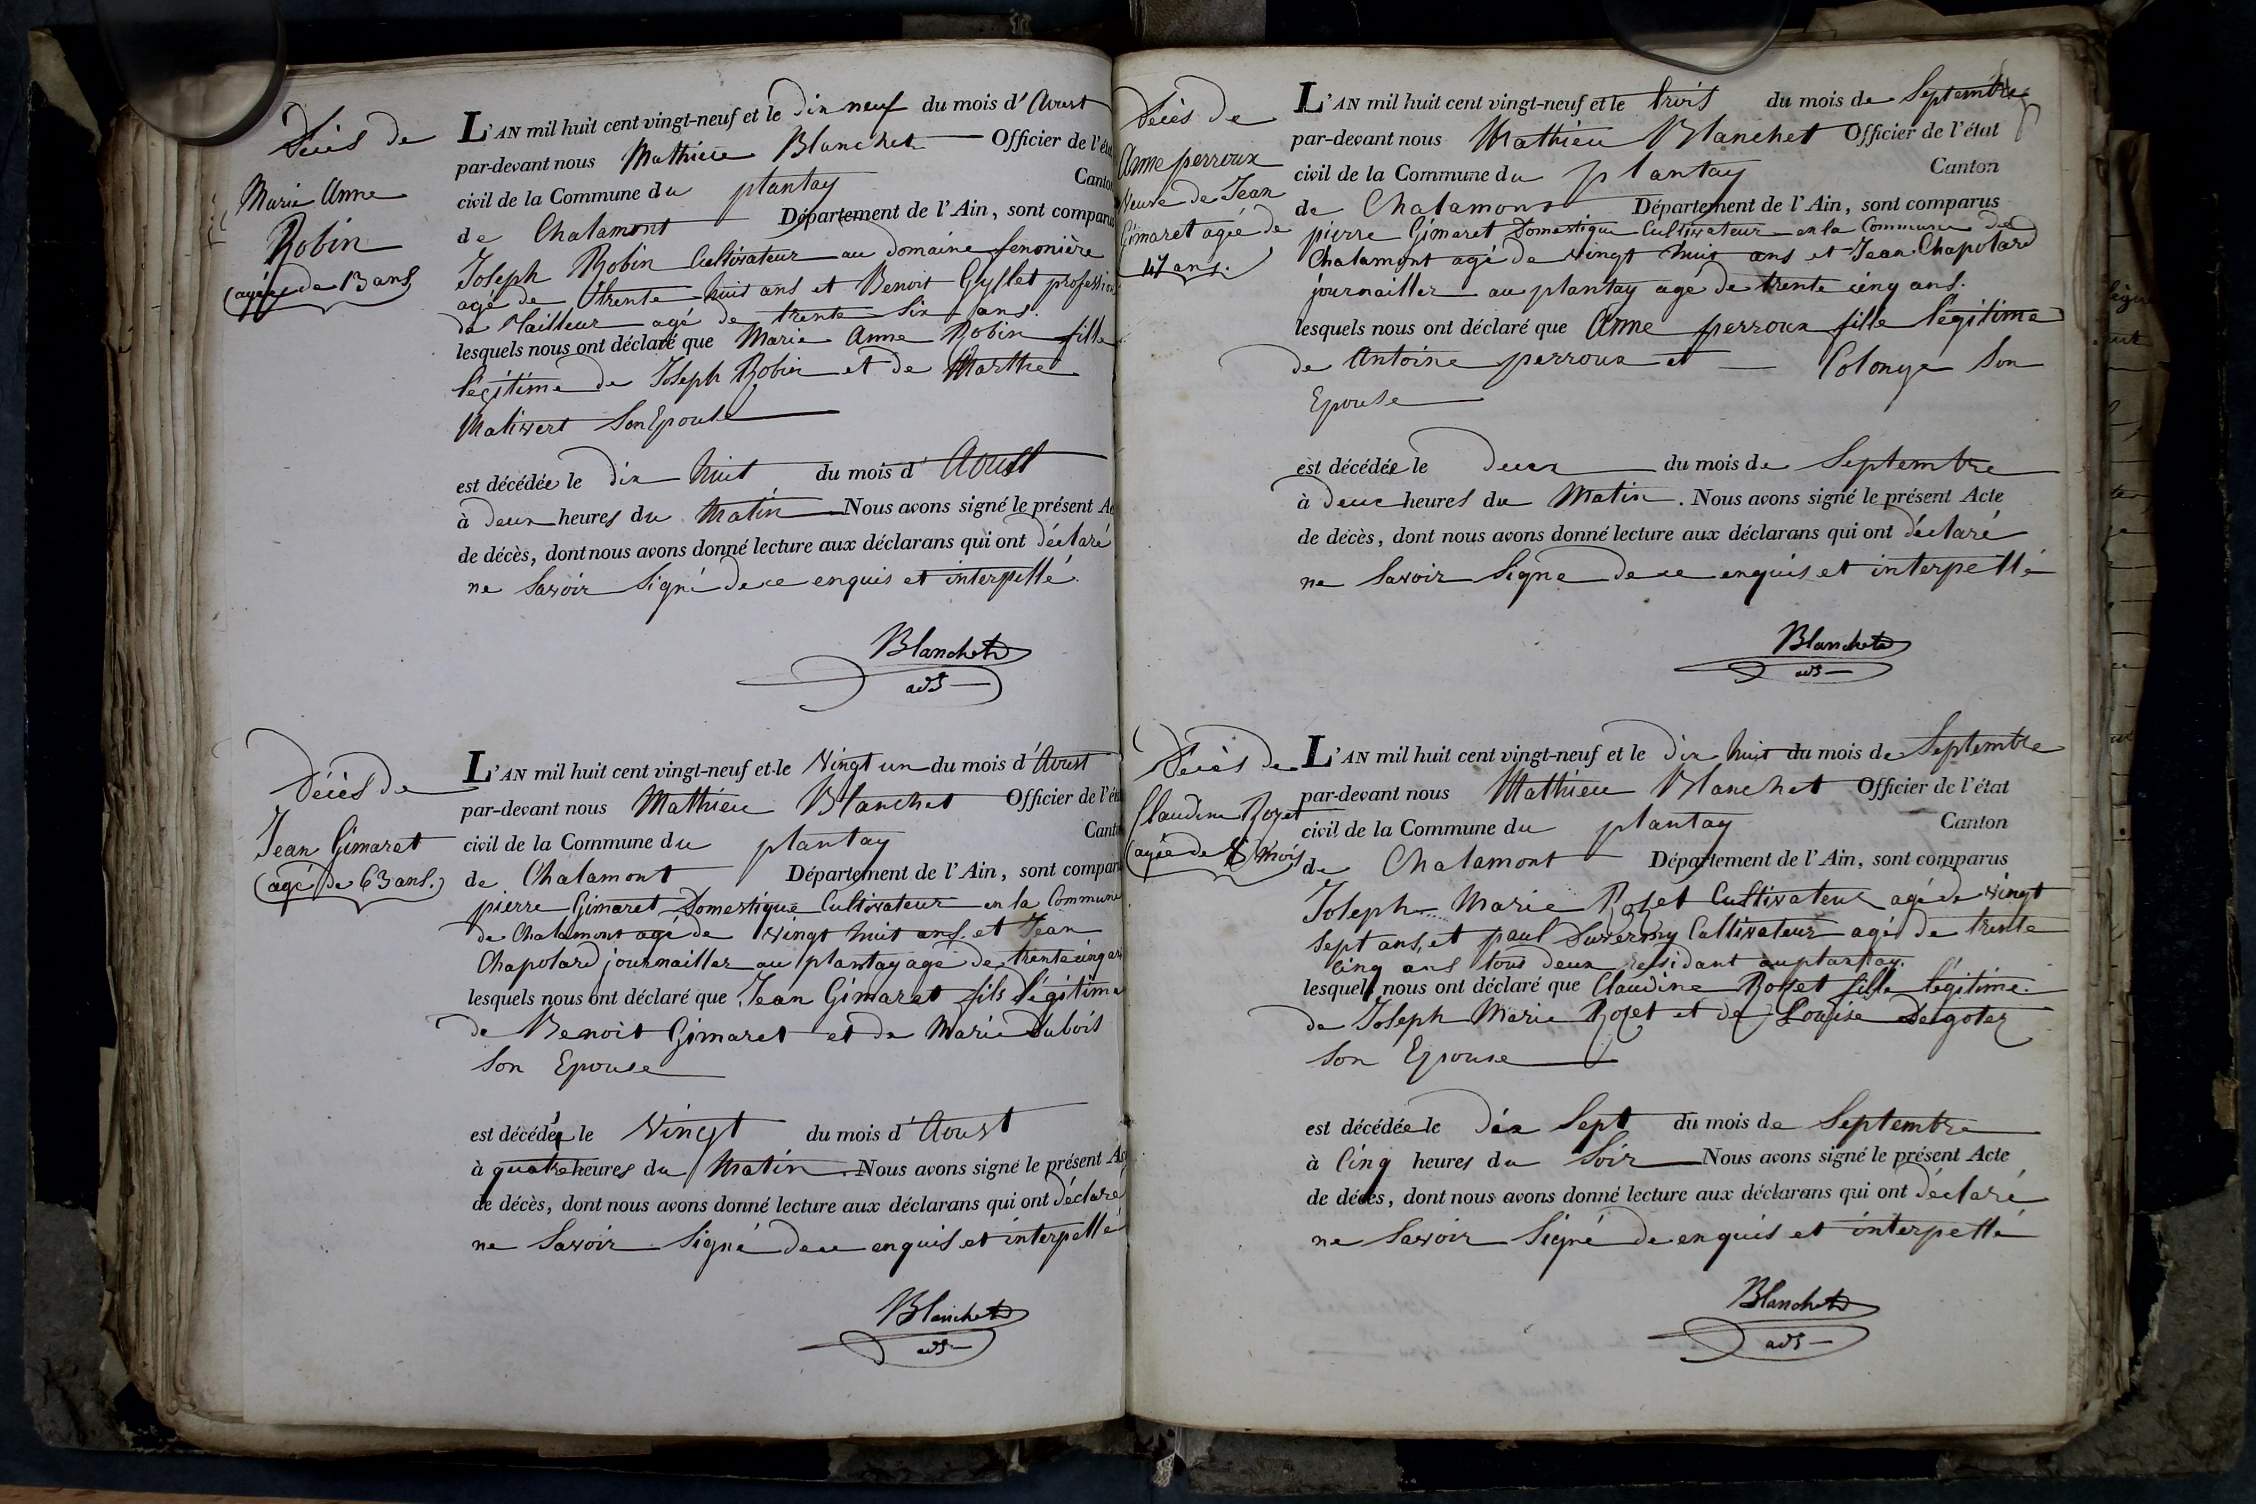 Décès de
Marie Anne
Robin
(agée de 13 ans)
L'AN mil huit cent vingt-neuf et le dix neuf du mois d'Aoust
par-devant nous Mathieu Blanchet Officier de l'éta
civil de la Commune du plantay Canton
de Chalamont Département de l'Ain, sont comparus
Joseph Robin Cultivateur au domaine fenonière
agé de trente huit ans et Benoit Gyllet profession
de Tailleur agé de trente Six ans.
lesquels nous ont déclaré que Marie Anne Robin fille
légitime de Joseph Robin et de Marthe
Mativert Son Epouse
est décédée le dix huit du mois d'Aoust
à deux heures du Matin Nous avons signé le présent Ac
de décès, dont nous avons donné lecture aux déclarans qui ont déclaré
ne Savoir Signé de ce enquis et interpellé.
Blanchet
adt
Décès de
Jean Gimaret
(agé de 63 ans.)
L'AN mil huit cent vingt-neuf et le Vingt un du mois d'Aoust
par-devant nous Mathieu Blanchet Officier de l'éta
civil de la Commune du plantay Canto
de Chalamont Département de l'Ain, sont compar
pierre Gimaret Domestique Cultivateur en la Commune
de Chalamont agé de Vingt huit ans et Jean
Chapolard journallier au plantay agé de trente cinq an
lesquels nous ont déclaré que Jean Gimaret fils légitime
de Benoit Gimaret et de Marie Dubois
Son Epouse
est décédé le Vingt du mois d'Aoust
à quatre heures du Matin. Nous avons signé le présent Ac
de décès, dont nous avons donné lecture aux déclarans qui ont déclaré
ne Savoir Signé de ce enquis et interpellé
Blanchet
adt
Décès de
Anne perroux
Veuve de Jean
Gimaret agée de
47 ans.
L'AN mil huit cent vingt-neuf et le trois du mois de Septembre
par-devant nous Mathieu Blanchet Officier de l'état
civil de la Commune du plantay Canton
de Chalamont Département de l'Ain, sont comparus
pierre Gimaret Domestique Cultivateur en la Commune de
Chalamont agé de Vingt huit ans et Jean Chapolard
journaillier au plantay agé de trente cinq ans.
lesquels nous ont déclaré que Anne perroux fille légitime
de Antoine perroux et — Colonge Son
Epouse
est décédée le deux du mois de Septembre
à deux heures du Matin. Nous avons signé le présent Acte
de décès, dont nous avons donné lecture aux déclarans qui ont déclaré
ne Savoir Signe de ce enquis et interpellé
Blanchet
adt
Décès de
Claudine Rozet
(agée de mois
L'AN mil huit cent vingt-neuf et le dix huit du mois de Septembre
par-devant nous Mathieu Blanchet Officier de l'état
civil de la Commune du plantay Canton
de Chalamont Département de l'Ain, sont comparus
Joseph Marie Rozet Cultivateur agé de Vingt
Sept ans, et paul Duvermy Cultivateur agé de trente
cinq ans tous deux residant au plantay.
lesquels nous ont déclaré que Claudine Rozet fille légitime
de Joseph Marie Rozet et de Louise Degotez
Son Epouse
est décédée le dix Sept du mois de Septembre
à Cinq heures du Soir Nous avons signé le présent Acte
de décès, dont nous avons donné lecture aux déclarans qui ont déclaré
ne Savoir Signé de enquis et interpellé
Blanchet
adt